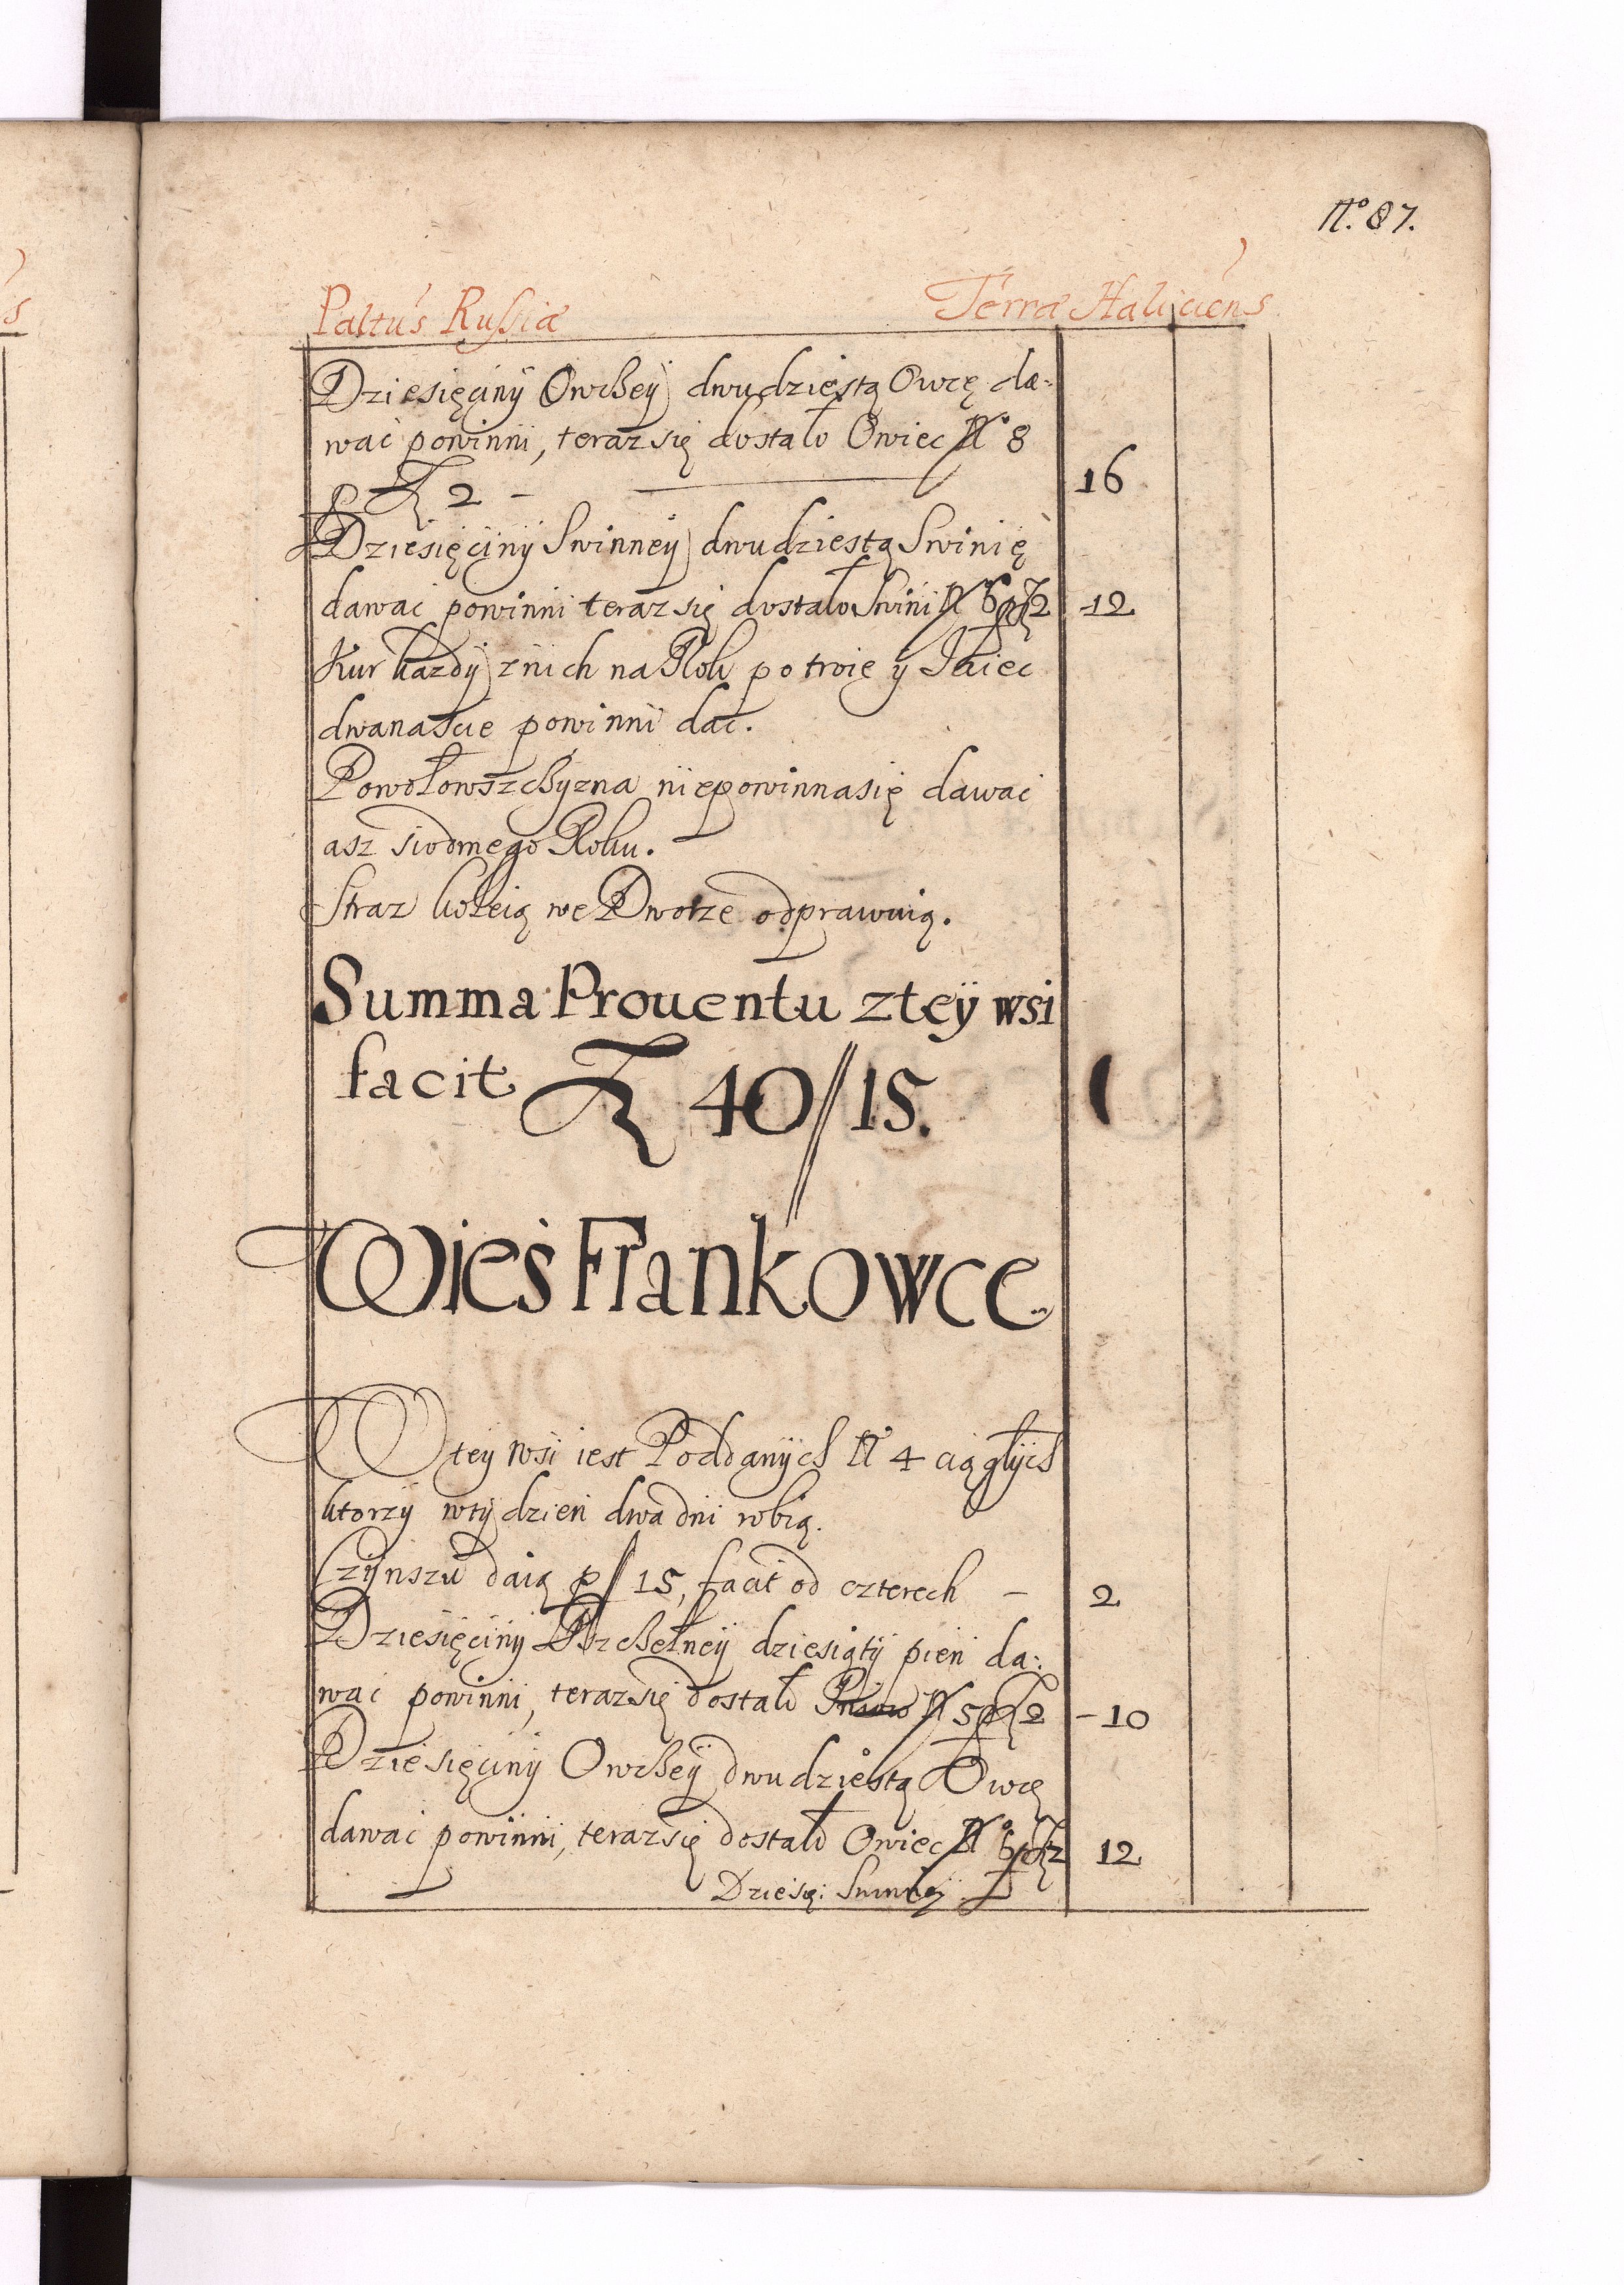 N.º 87.
Paltus Russiæ Terræ Haliciens
Dziesięciny Owczey dwudziestą Owcę da-
wać powinni, teraz się dostało Owiec Nº 8
p Fl 2 – 16
Dziesięciny Swinney dwudziestą Swinię
dawać powinni teraz się dostało Swini Nº 6 p Fl 2 - 12
Kur każdy z nich na Rok po troię y Jaiec
dwanaście powinni dać.
Powołowszczyzna niepowinna się dawać
asz siodmego Roku.
Straz koleią we Dworze odprawuią.
Summa Prouentu z tey wsi
facit Fl 40//15.
Wieś Frankowce
W tey wsi iest Poddanych Nº 4 ciągłych
ktorzy w tydzień dwa dni robią.
Czynszu daią p // 15, facit od czterech – 2
Dziesięciny Pszczelney dziesiąty pień da-
wać powinni, teraz się dostało Pniow Nº 5 p Fl 2 - 10
Dziesięciny Owczey dwudziestą Owcę
dawać powinni, teraz się dostało Owiec Nº 6 p Fl 2 12
Dziesię: Swinney